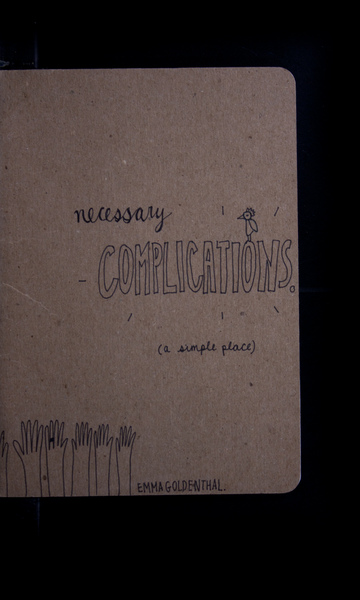 necessary
COMPLICATIONS.
(a simple place)
EMMA GOLDENTHAL.